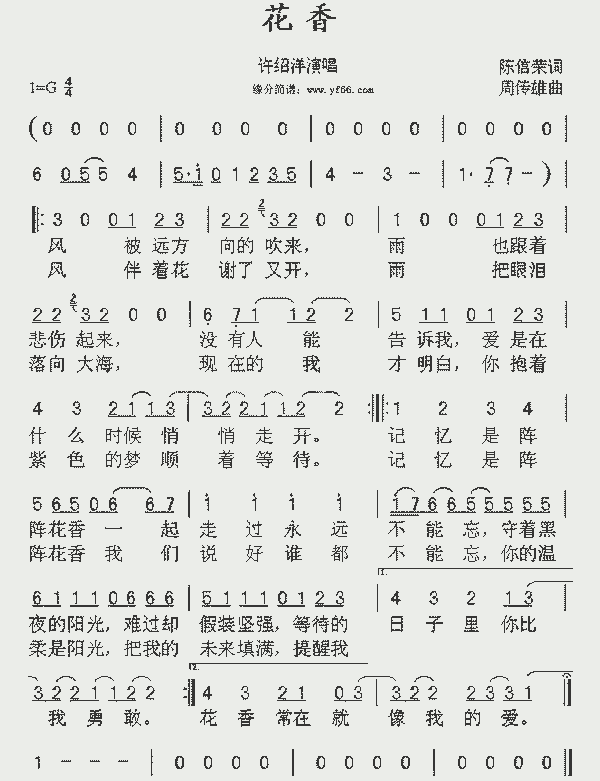 花香
许绍洋演唱
陈信荣词
1=G 4/4
缘分简谱：www.yf66.com
周传雄曲
(0 0 0 0 | 0 0 0 0 | 0 0 0 0 | 0 0 0 0 |
6 055 4 | 5·1 0 1 235 | 4 - 3 - | 1· 77 - ) |
3 0 01 23 | 22 2 32 0 0 | 1 0 0 01 23 |
风 被 远方 向的 吹来， 雨 也跟着
风 伴 着花 谢了 又开， 雨 把眼泪
22 2 32 0 0 | 6 71 12 2 | 5 11 01 23 |
悲伤 起来， 没 有人 能 告 诉我， 爱 是在
落向 大海， 现 在的 我 才 明白， 你 抱着
4 3 211 3 | 322112 2 :| 1 2 3 4 |
什 么 时候 悄 悄 走 开。 记 忆 是 阵
紫 色 的梦 顺 着 等 待。 记 忆 是 阵
5 65 06 67 | 1 1 1 1 | 176 65 55 55 |
阵花香 一 起 走 过 永 远 不 能 忘，守着黑
阵花香 我 们 说 好 谁 都 不 能 忘，你的温
1.
61 11 06 66 | 51 11 01 23 | 4 3 2 13 |
夜的阳光，难过却 假装坚强，等待的 日 子 里 你比
柔是阳光，把我的 未来填满，提醒我
2.
322112 2 :| 4 3 21 03 | 322 2331 ||
我 勇 敢。 花 香 常在 就 像 我 的 爱。
1 - - - | 0 0 0 0 | 0 0 0 0 | 0 0 0 0 |